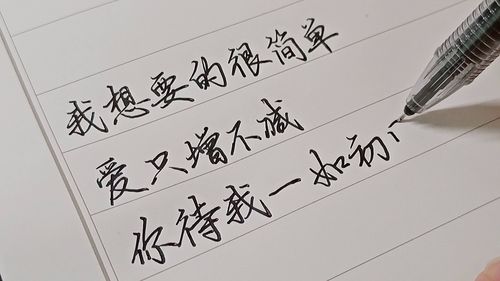 我想要的很简单
爱只增不减
你待我一如初